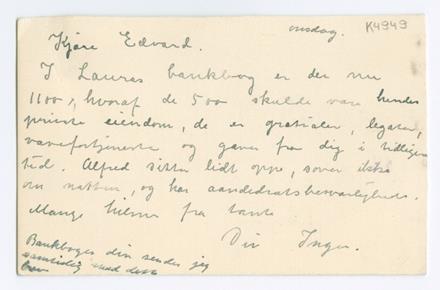 onsdag. K4949
Kjære Edvard.
I Lauras bankbog er der nu
1100,, hvoraf de 500 skulde være hendes
private eiendom, de er gratialer, legater,
vævefortjeneste og gaver fra dig i tidligere
tid. Alfred sitter lidt oppe, sover
om natten, og har aandedrætsbesværligheder.
Mange hilsner fra tante
Din Inger.
Bankbogen din sender jeg
samtidig med dette
brev